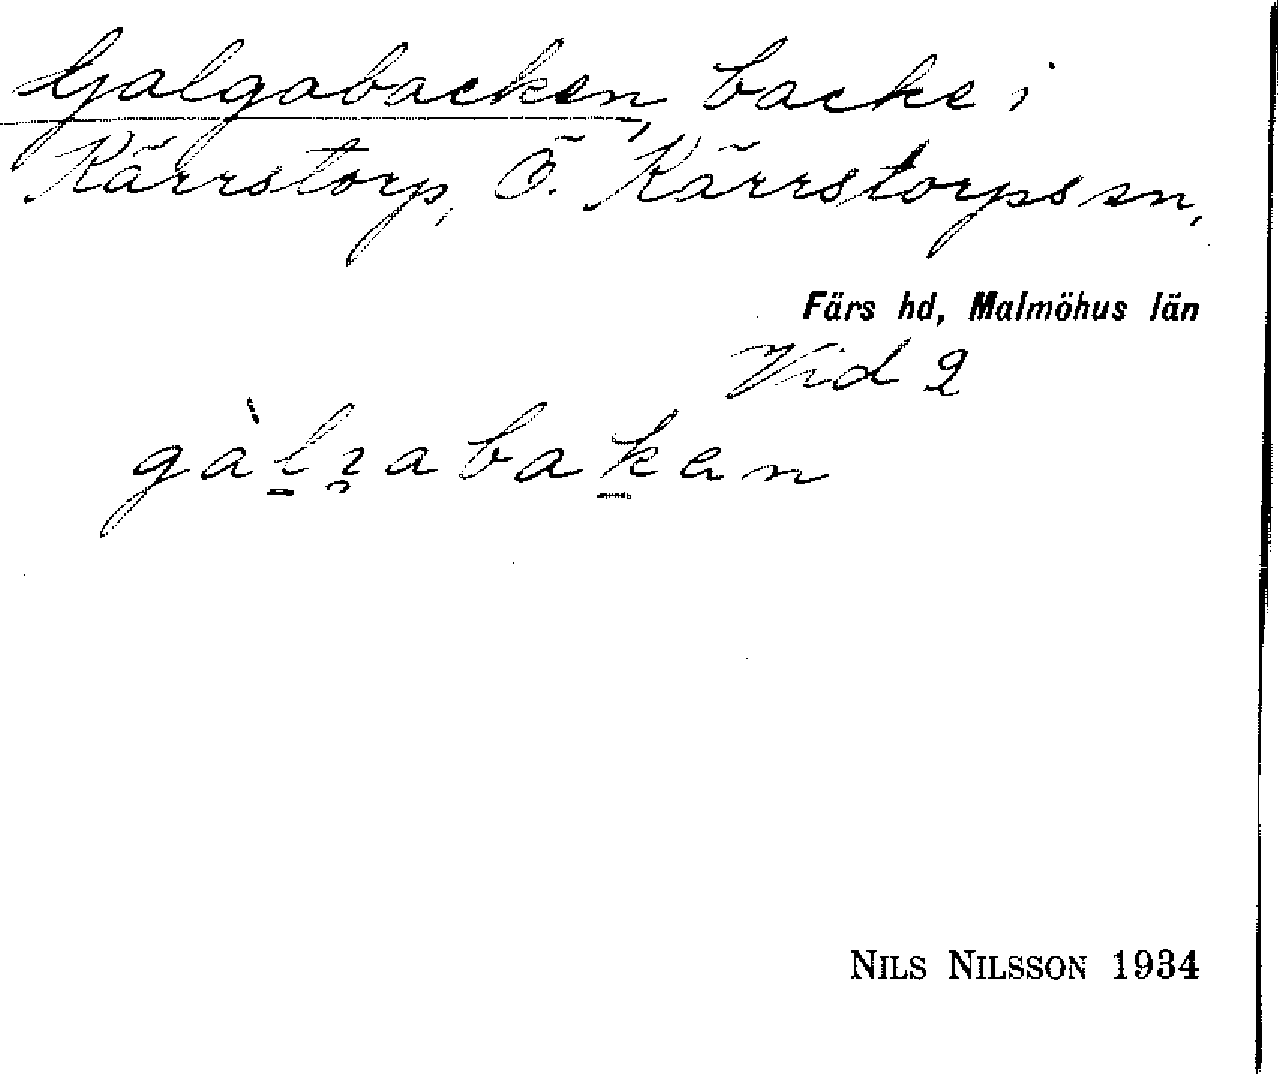 Galgabacken, backe i
Kärrstorp, Ö. Kärrstorps sn,
Färs hd, Malmöhus län
Vid 2
NILS NILSSON 1934